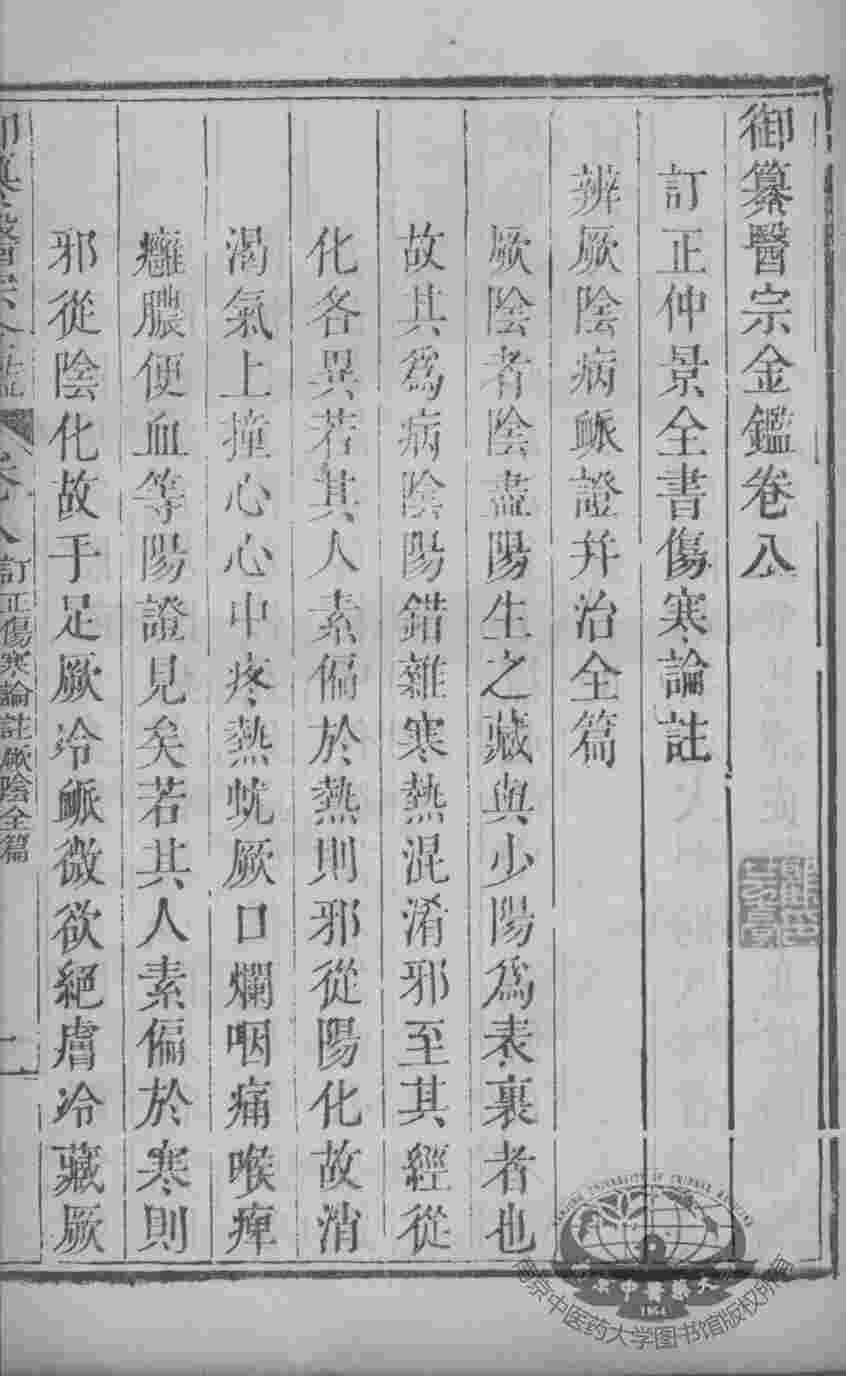 御纂醫宗金鑑卷八
訂正仲景全書傷寒論註
辨厥陰病脈證并治全篇
厥陰者陰盡陽生之藏與少陽爲表裏者也
故其爲病陰陽錯雜寒熱混淆邪至其經從
化各異若其人素偏於熱則邪從陽化故消
渴氣上撞心心中疼熱蚘厥口爛咽痛喉痺
癰膿便血等陽證見矣若其人素偏於寒則
邪從陰化故手足厥冷脈微欲絕膚冷藏厥
御纂醫宗金鑑 卷八 訂正傷寒論註厥陰全篇
南京中医药大学图书馆版权所有
1954